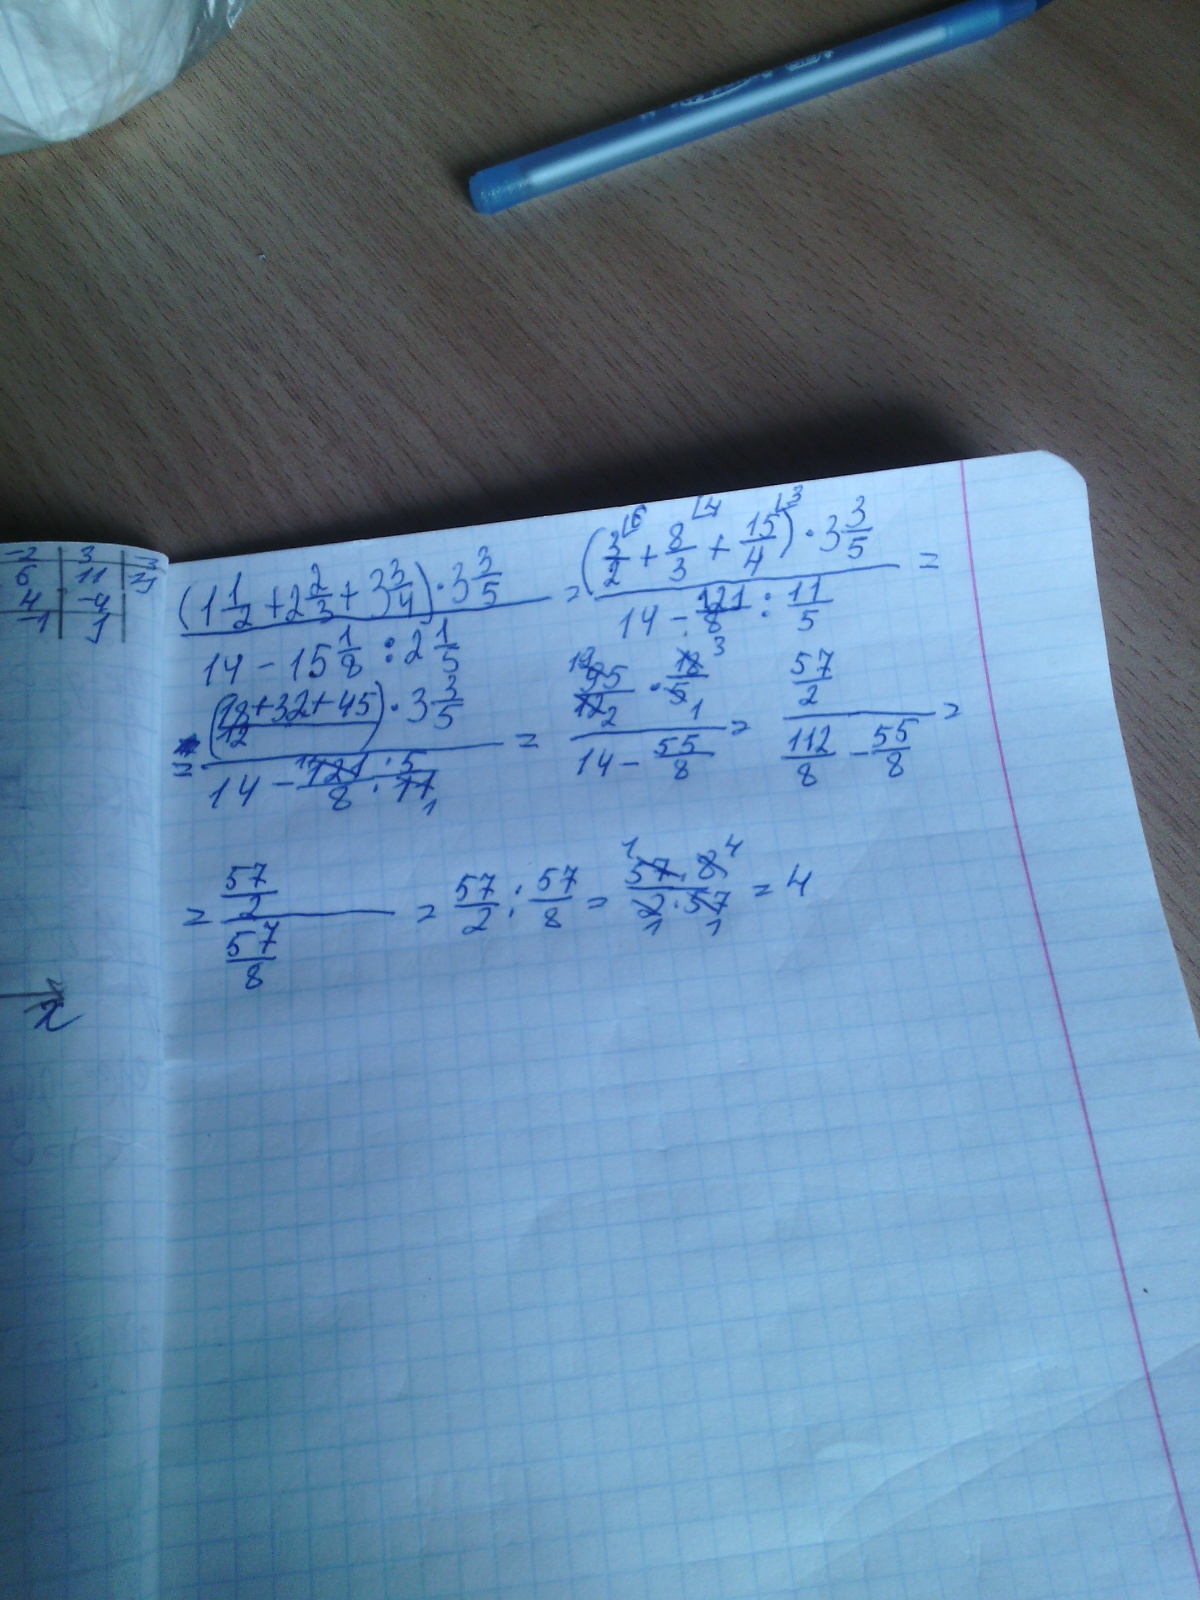 -2 3
6 11
4 -4
-1 1
(1 1/2 + 2 2/3 + 3 3/4) · 3 3/5 / 14 - 15 1/8 : 2 1/5 = (3/2 ⌊6 + 8/3 ⌊4 + 15/4 ⌊3) · 3 3/5 / 14 - 121/8 : 11/5 =
= (18+32+45 / 12) · 3 3/5 / 14 - 121/8 · 5/11 = 95/12 · 18/5 / 14 - 55/8 = 57/2 / 112/8 - 55/8 =
= 57/2 / 57/8 = 57/2 : 57/8 = 57 · 8 / 2 · 57 = 4
x